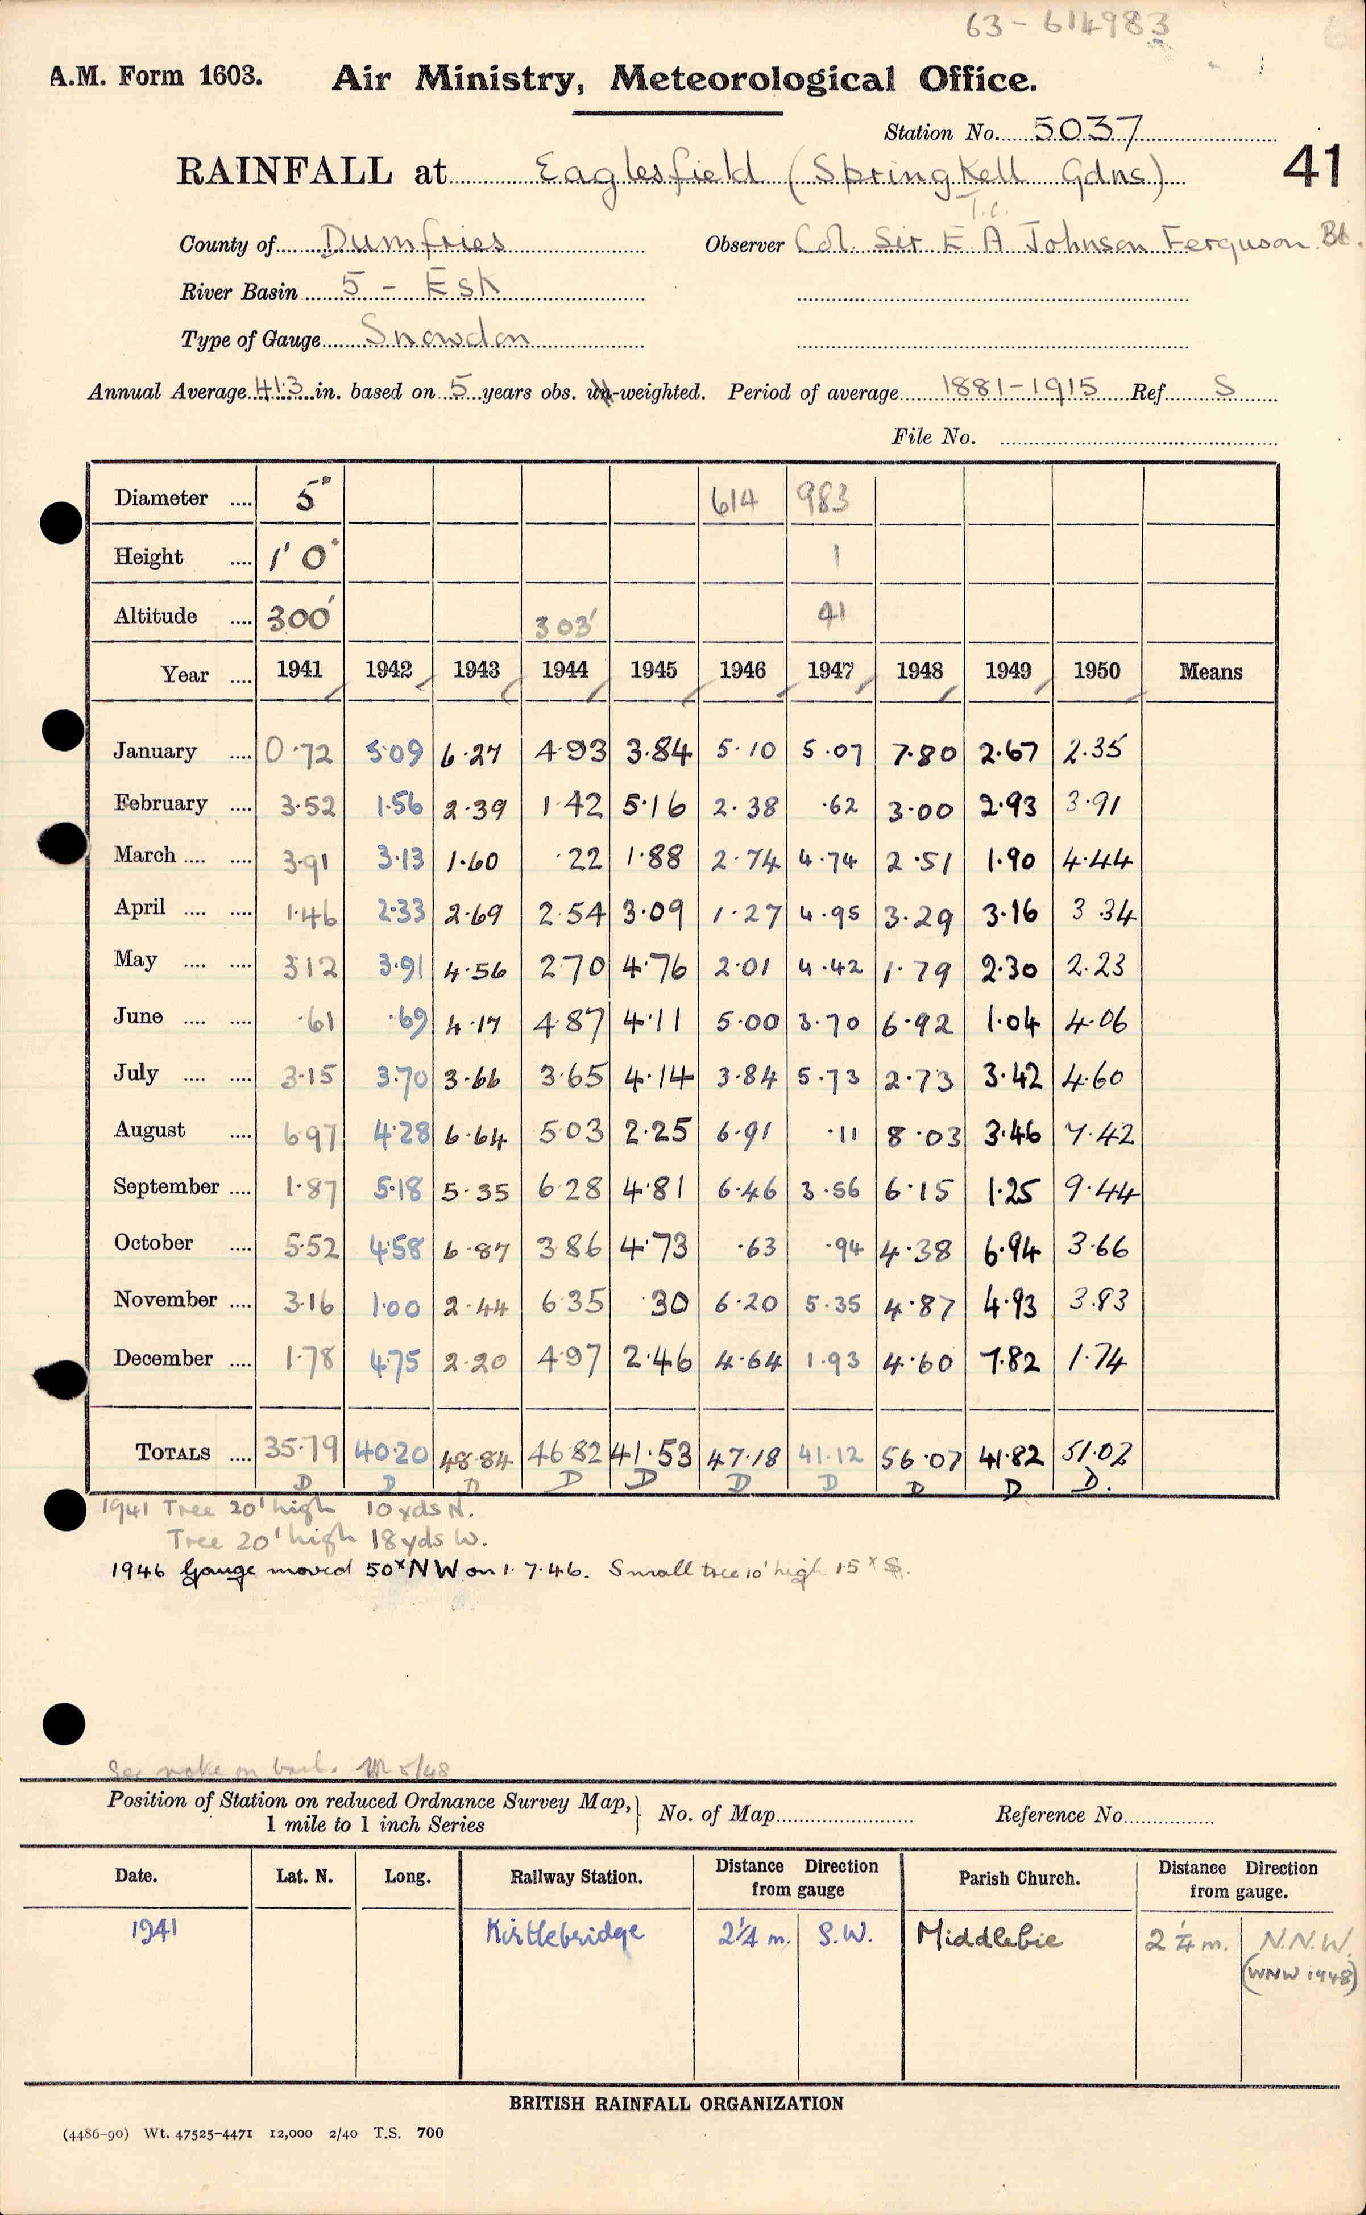 63 - 614983
A.M. Form 1603. Air Ministry, Meteorological Office.
Station No. 5037
RAINFALL at Eaglesfield (Springkell Gdns) 41
T.C.
County of Dumfries Observer Col. Sir E A Johnson Ferguson Bt.
River Basin 5 - Esk
Type of Gauge Snowdon
Annual Average 41.3 in. based on 5 years obs. un-weighted. Period of average 1881-1915 Ref S
File No.
Diameter .... 5" 614 983
Height .... 1' 0" 1
Altitude .... 300' 303' 41
Year .... 1941 1942 1943 1944 1945 1946 1947 1948 1949 1950 Means
January .... 0.72 5.09 6.27 4.93 3.84 5.10 5.07 7.80 2.67 2.35
February .... 3.52 1.56 2.39 1.42 5.16 2.38 .62 3.00 2.93 3.91
March .... .... 3.91 3.13 1.60 .22 1.88 2.74 4.74 2.51 1.90 4.44
April .... .... 1.46 2.33 2.69 2.54 3.09 1.27 4.95 3.29 3.16 3.34
May .... .... 3.12 3.91 4.56 2.70 4.76 2.01 4.42 1.79 2.30 2.23
June .... .... .61 .69 4.17 4.87 4.11 5.00 3.70 6.92 1.04 4.06
July .... .... 3.15 3.70 3.66 3.65 4.14 3.84 5.73 2.73 3.42 4.60
August .... 6.97 4.28 6.64 5.03 2.25 6.91 .11 8.03 3.46 7.42
September .... 1.87 5.18 5.35 6.28 4.81 6.46 3.56 6.15 1.25 9.44
October .... 5.52 4.58 6.87 3.86 4.73 .63 .94 4.38 6.94 3.66
November .... 3.16 1.00 2.44 6.35 .30 6.20 5.35 4.87 4.93 3.83
December .... 1.78 4.75 2.20 4.97 2.46 4.64 1.93 4.60 7.82 1.74
TOTALS .... 35.79 40.20 48.84 46.82 41.53 47.18 41.12 56.07 41.82 51.02
D D D D D D D D D D.
1941 Tree 20' high 10 yds N.
Tree 20' high 18 yds W.
1946 Gauge moved 50x NW on 1.7.46. Small tree 10' high 15x S.
See note on back. 5/48
Position of Station on reduced Ordnance Survey Map, } No. of Map Reference No.
1 mile to 1 inch Series
Date. Lat. N. Long. Railway Station. Distance Direction from gauge Parish Church. Distance Direction from gauge.
1941 Kirtlebridge 2¼ m. S.W. Middlebie 2¼ m. N.N.W.
(WNW 1948)
BRITISH RAINFALL ORGANIZATION
(4486-90) Wt. 47525-4471 12,000 2/40 T.S. 700